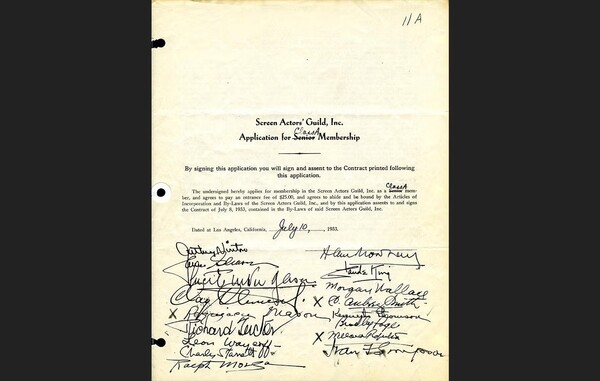 11 A
Screen Actors' Guild, Inc.
Class A
Application for Senior Membership
By signing this application you will sign and assent to the Contract printed following
this application.
Class A
The undersigned hereby applies for membership in the Screen Actors Guild, Inc. as a Senior mem-
ber, and agrees to pay an entrance fee of $25.00, and agrees to abide and be bound by the Articles of
Incorporation and By-Laws of the Screen Actors Guild, Inc., and by this application assents to and signs
the Contract of July 8, 1933, contained in the By-Laws of said Screen Actors Guild, Inc.
Dated at Los Angeles, California, July 10, 1933.
Alan Mowbray
Lucile Gleason
Claude King
Morgan Wallace
Clay Clement
X C. Aubrey Smith
X Reginald Mason
Kenneth Thomson
Bradley Page
Richard Tucker
Leon Waycoff
X
Charles Starrett
Ivan Simpson
Ralph Morgan